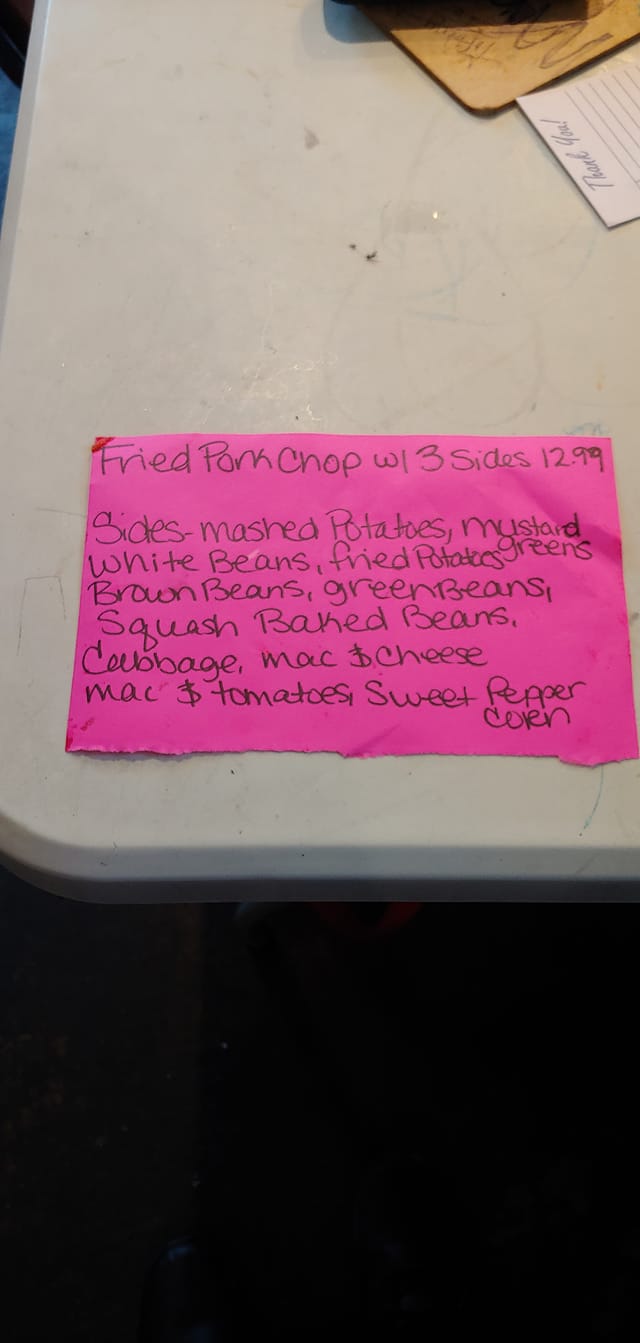 Thank You!
Fried Pork Chop w/ 3 Sides 12.99
Sides- mashed Potatoes, mustard greens
white Beans, fried Potatoes
Brown Beans, green Beans,
Squash Baked Beans,
Cabbage, mac $ cheese
mac $ tomatoes, Sweet Pepper
corn